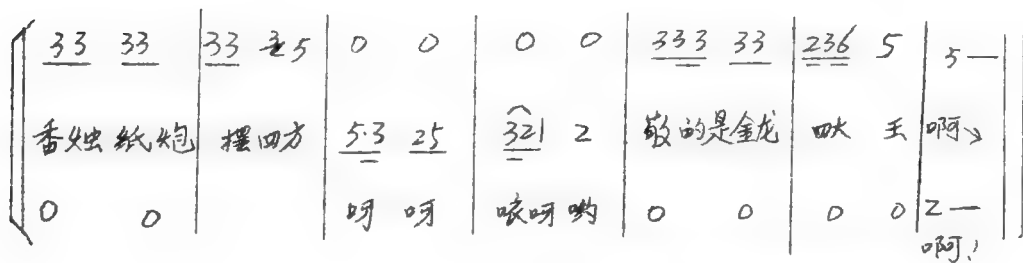 33 33 | 33 35 | 0 0 | 0 0 | 333 33 | 236 5 | 5 —
香烛 纸炮 | 摆四方 | 5·3 25 | 321 2 | 敬的是金龙 | 四大 王 | 啊
0 0 | 呀 呀 | 咳呀 哟 | 0 0 | 0 0 | 2 —
啊!